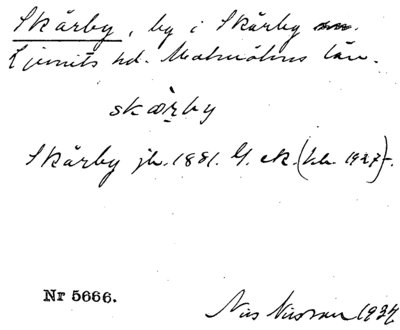 Skårby, by i Skårby sn.
Ljunits hd. Malmöhus län.
skæ̀rby
Skårby jb. 1881. G. ek. (bl. 1927).
Nr 5666.
Nils Nilsson 1934